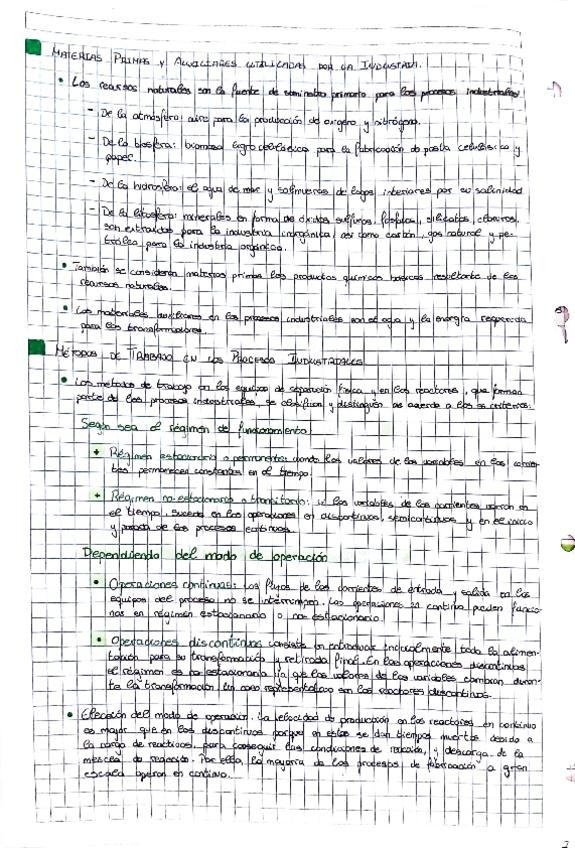 MATERIAS PRIMAS Y AUXILIARES UTILIZADAS POR LA INDUSTRIA.
• Los recursos naturales son la fuente de suministro primario para los procesos industriales
- De la atmósfera: aire para la producción de oxígeno y nitrógeno.
- De la biosfera: biomasa lignocelulósica para la fabricación de pasta celulósica y
papel.
- De la hidrosfera: el agua de mar y salmueras de lagos interiores por su salinidad
- De la litosfera: minerales en forma de óxidos, sulfuros, fosfatos, silicatos, cloruros,
son extraídos para la industria inorgánica, así como carbón, gas natural y pe-
tróleo para la industria orgánica.
• También se consideran materias primas los productos químicos básicos resultante de los
recursos naturales.
• Los materiales auxiliares en los procesos industriales son el agua y la energía requerida
para las transformaciones.
MÉTODOS DE TRABAJO EN LOS PROCESOS INDUSTRIALES
• Los métodos de trabajo en los equipos de separación física y en los reactores, que forman
parte de los procesos industriales, se clasifican y distinguen de acuerdo a los criterios:
Según sea el régimen de funcionamiento
+ Régimen estacionario o permanente: cuando los valores de las variables en las corrien-
tes permanecen constantes en el tiempo.
+ Régimen no estacionario o transitorio: si las variables de las corrientes varían en
el tiempo. Sucede en las operaciones en discontinuo, semicontinuas y en el inicio
y parada de los procesos continuos.
Dependiendo del modo de operación
• Operaciones continuas: Los flujos de las corrientes de entrada y salida en los
equipos del proceso no se interrumpen. Las operaciones en continuo pueden funcio-
nar en régimen estacionario o no estacionario.
• Operaciones discontinuas consiste en introducir inicialmente toda la alimen-
tación para su transformación y retirada final. En las operaciones discontinuas
el régimen es no estacionario ya que los valores de las variables cambian duran-
te la transformación. Un caso representativo son los reactores discontinuos.
• Elección del modo de operación. La velocidad de producción en los reactores en continuo
es mayor que en los discontinuos porque en estos se dan tiempos muertos debido a
la carga de reactivos, para conseguir las condiciones de reacción, y descarga de la
mezcla de reacción. Por ello, la mayoría de los procesos de fabricación a gran
escala operan en continuo.
2